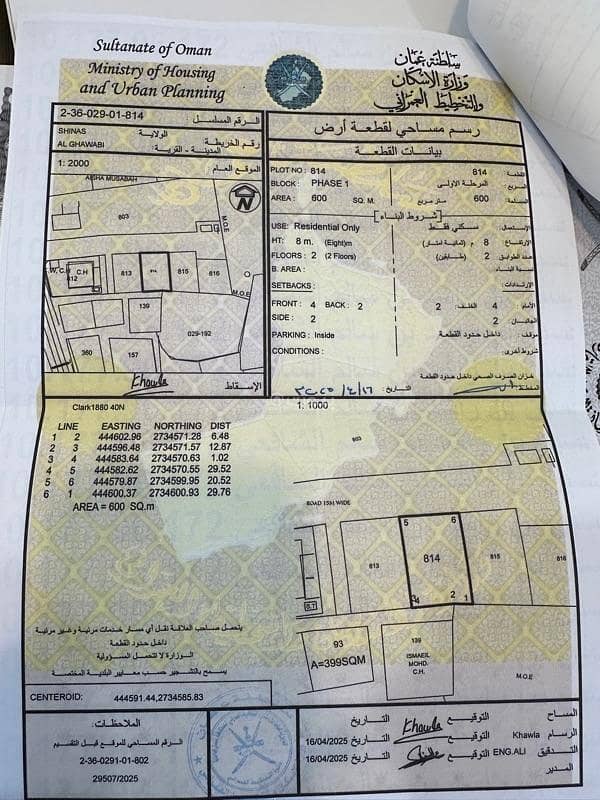 Sultanate of Oman
Ministry of Housing
and Urban Planning
سلطنة عمان
وزارة الإسكان
والتخطيط العمراني
2-36-029-01-814
الرقم المسلسل :
SHINAS
الولاية
رقم الخريطة
AL GHAWABI
المدينة - القرية:
1: 2000
الموقع العام
AISHA MUSABAH
803
N
M.O.E
W.C.H
812
C.H
813
814
815
816
M.O.E
139
029-192
360
157
Khawla
الإسقاط
رسم مساحي لقطعة أرض
بيانات القطعة
PLOT NO : 814
814
القطعة:
BLOCK : PHASE 1
المرحلة الاولى
المربع:
AREA : 600 SQ. M.
600 متر مربع
المساحة:
شروط البناء
USE: Residential Only
سكني فقط
الإستعمال:
HT: 8 m. (Eight)m
8 م (ثمانية امتار)
الإرتفاع:
FLOORS : 2 (2 Floors)
2 (طابقين)
عدد الطوابق
B. AREA :
نسبة البناء:
SETBACKS :
الإرتدادات:
FRONT : 4 BACK : 2
الأمام: 4 الخلف: 2
SIDE : 2
الجانبان: 2
PARKING : Inside
موقف: داخل حدود القطعة
CONDITIONS :
شروط أخرى:
خزان الصرف الصحي داخل حدود القطعة
التاريخ:
Clark1880 40N
1: 1000
LINE EASTING NORTHING DIST
1 2 444602.96 2734571.28 6.48
2 3 444596.48 2734571.57 12.87
3 4 444583.64 2734570.63 1.02
4 5 444582.62 2734570.55 29.52
5 6 444579.87 2734599.95 20.52
6 1 444600.37 2734600.93 29.76
AREA = 600 SQ.m
803
ROAD 15M WIDE
813
5
6
814
2
1
815
816
S.T
93
A=399SQM
139
ISMAEIL
MOHD.
C.H.
M.O.E
يتحمل صاحب العلاقة نقل أي مسار خدمات مرئية وغير مرئية
داخل حدود القطعة
الوزارة لا تتحمل المسؤولية
يسمح بالتشجير حسب معايير البلدية المختصة
CENTEROID: 444591.44,2734585.83
الملاحظات:
الرقم المساحي للموقع قبل التقسيم
2-36-0291-01-802
29507/2025
المساح
التوقيع
Khawla
التاريخ
الرسام Khawla
التوقيع
التاريخ 16/04/2025
التدقيق ENG.ALI
التوقيع
التاريخ 16/04/2025
المدير